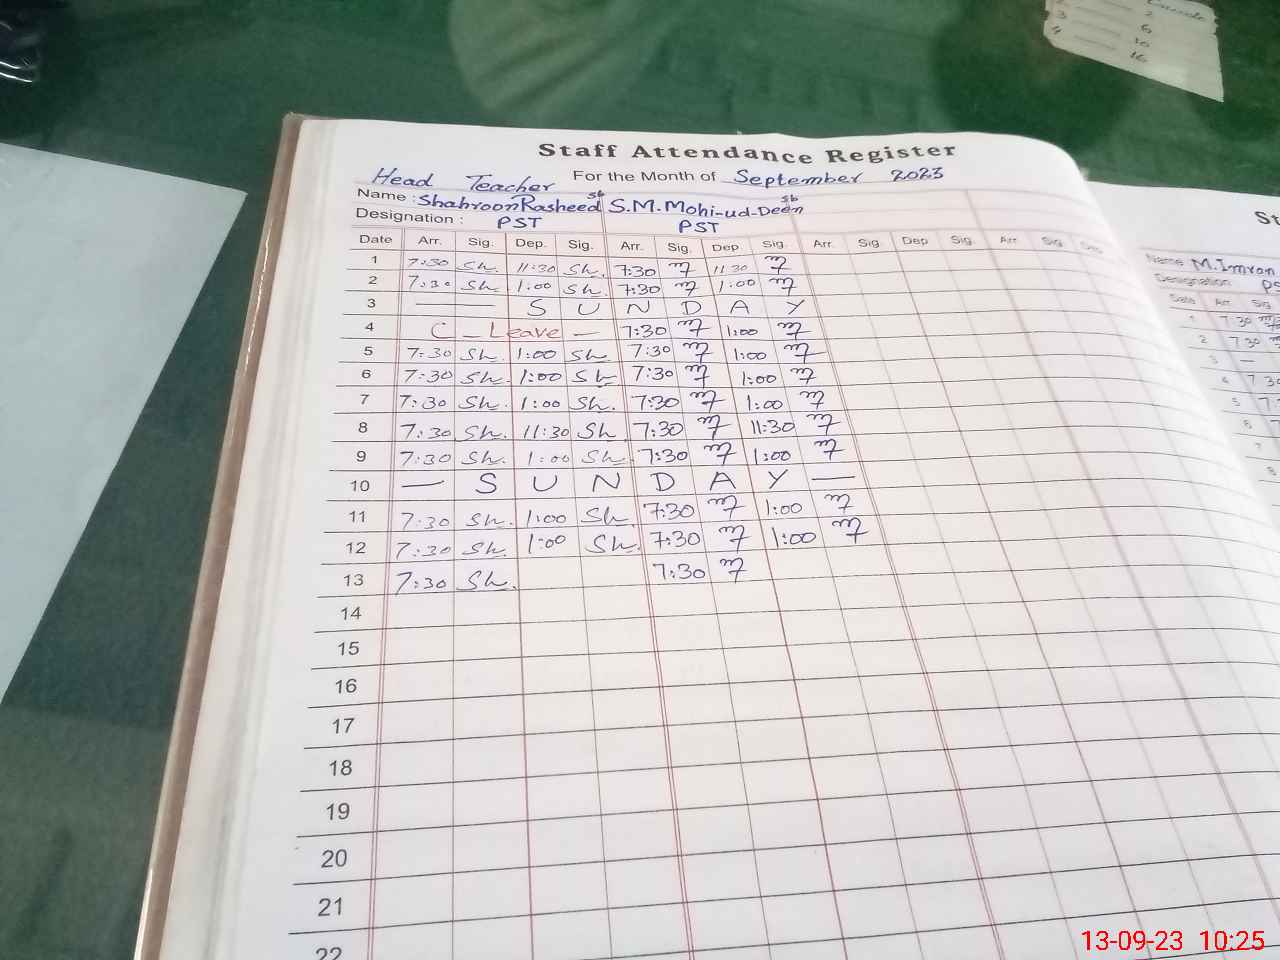 Canade
2
3 — 6
4 — 10
16
Staff Attendance Register
Head Teacher For the Month of September 2023
Name : Shahroon Rasheed sb S.M.Mohi-ud-Deen sb
Designation : PST PST
Date Arr. Sig. Dep. Sig. Arr. Sig. Dep Sig. Arr. Sig. Dep Sig. Arr. Sig. Dep.
1 7:30 Sh. 11:30 Sh. 7:30 11:30
2 7:30 Sh 1:00 Sh. 7:30 1:00
3 — S U N D A Y
4 C - Leave — 7:30 1:00
5 7:30 Sh. 1:00 Sh 7:30 1:00
6 7:30 Sh. 1:00 Sh. 7:30 1:00
7 7:30 Sh. 1:00 Sh. 7:30 1:00
8 7:30 Sh. 11:30 Sh 7:30 11:30
9 7:30 Sh. 1:00 Sh. 7:30 1:00
10 — S U N D A Y —
11 7:30 Sh. 1:00 Sh. 7:30 1:00
12 7:30 Sh. 1:00 Sh. 7:30 1:00
13 7:30 Sh. 7:30
14
15
16
17
18
19
20
21
22
St
Name M.Imran
Designation PS
Date Arr. Sig.
1 7:30
2 7:30
3 —
4 7:30
5 7:
6 7
7
8
13-09-23 10:25